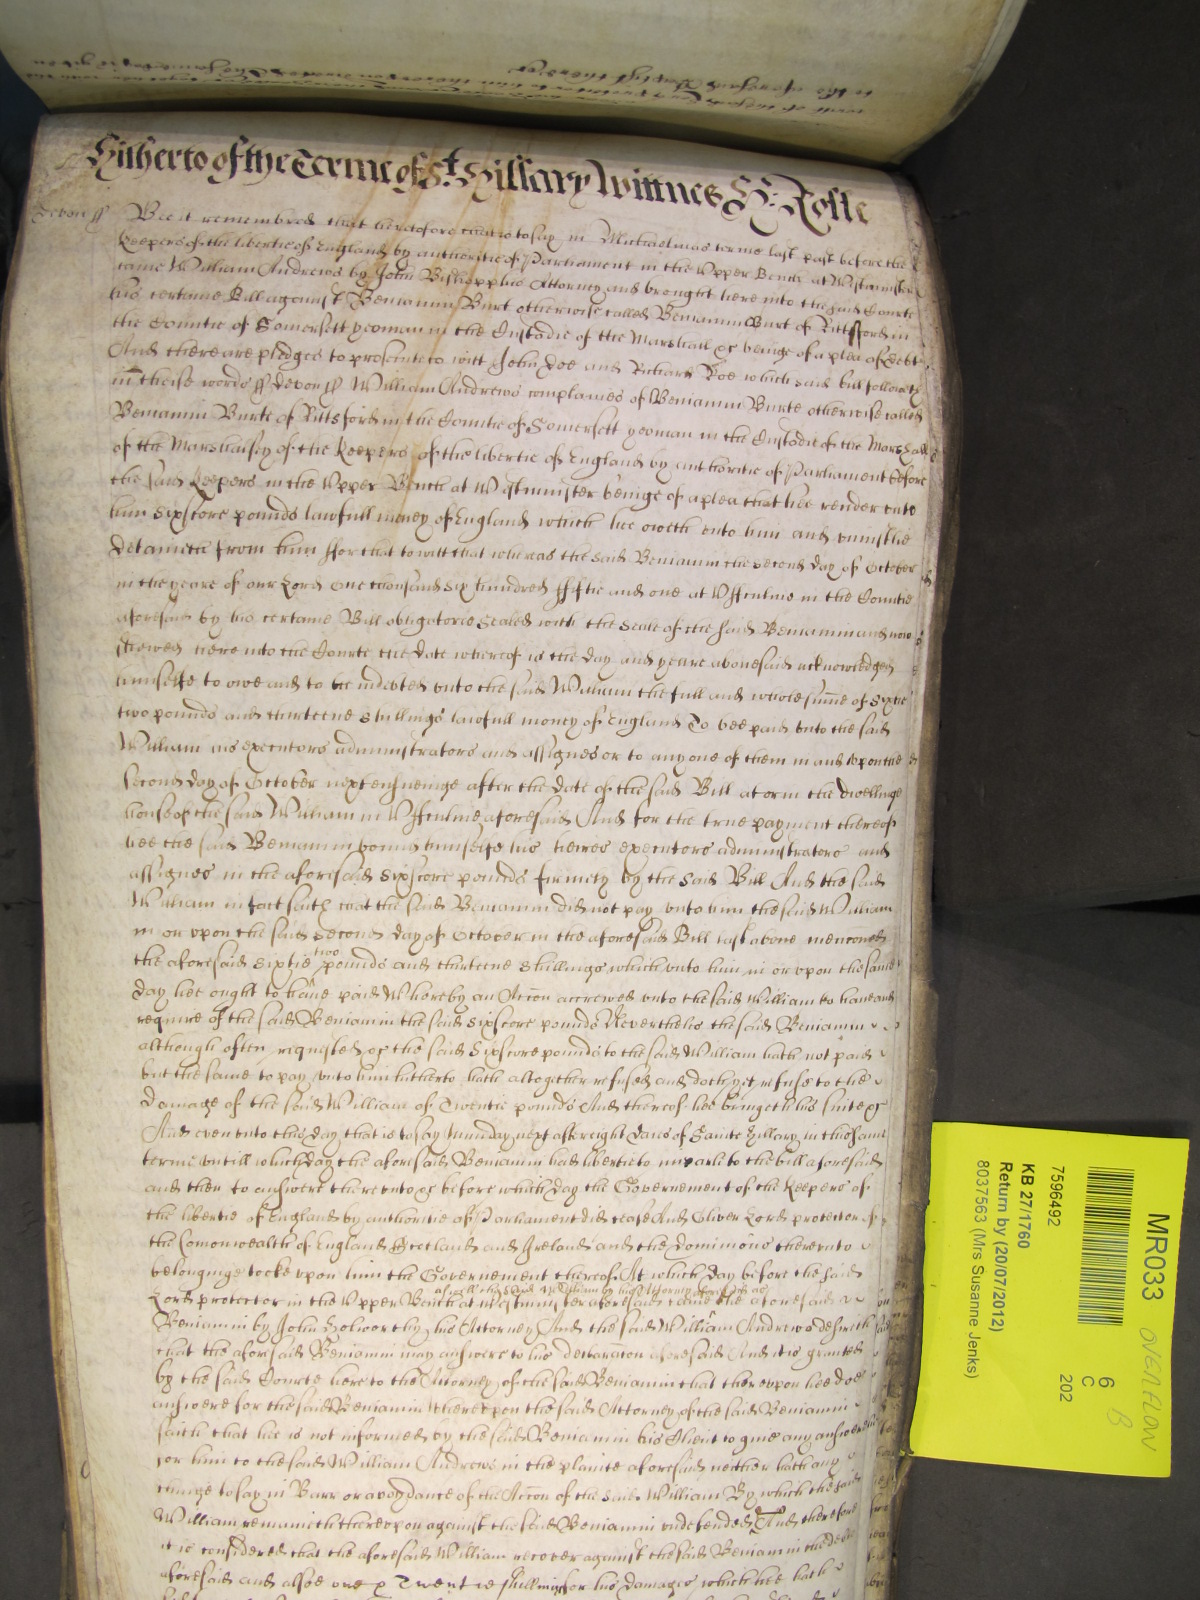 Hitherto of the Terme of St. Hillary Wittnes H: Rolle
Devon ss Bee it remembred that heretofore that is to say in Michaelmas terme last past before the
Keepers of the libertie of England by authoritie of Parliament in the Upper Bench at Westminster
came William Andrews by John Bishopp his Attorney and brought here into the said Courte
his certaine Bill against Beniamin Burt otherwise called Beniamin Burt of Kittsford in
the Countie of Somersett yeoman in the Custodie of the Marshall &c beinge of a plea of debt
And there are pledges to prosecute to witt John Doe and Richard Roe which said bill followeth
in theise words ss Devon ss William Andrews complaines of Beniamin Burte otherwise called
Beniamin Burte of Kittsford in the Countie of Somersett yeoman in the Custodie of the Marshall
of the Marshalsey of the Keepers of the libertie of England by authoritie of Parliament before
the said Keepers in the Upper Bench at Westminster beinge of a plea that hee render unto
him sixscore pounds lawfull money of England which hee oweth unto him and uniustlie
detaineth from him ffor that to witt that whereas the said Beniamin the second day of October
in the yeare of our Lord One thousand six hundred fiftie and one at Uffculme in the Countie
aforesaid by his certaine Bill obligatorie sealed with the seale of the said Beniamin and now
shewed here into the Courte the date whereof is the day and yeare abovesaid acknowledged
himselfe to owe and to be indebted unto the said William the full and whole summe of sixtie
two pounds and thirteene shillings lawfull money of England To bee paid unto the said
William his executors administrators and assignes or to any one of them in and upon the
second day of October next ensueinge after the date of the said Bill at or in the dwellinge
house of the said William in Uffculme aforesaid And for the true payment thereof
hee the said Beniamin bound himselfe his heires executors administrators and
assignes in the aforesaid sixscore pounds firmely by the said Bill And the said
William in fact saith that the said Beniamin did not pay unto him the said William
in or upon the said second day of October in the aforesaid Bill last above menconed
the aforesaid sixtie two pounds and thirteene shillings which unto him in or upon the same
day hee ought to have paid Whereby an Accon accrewed unto the said William to have and
require of the said Beniamin the said sixscore pounds Neverthelis the said Beniamin
although often requested of the said sixscore pounds to the said William hath not paid
but the same to pay unto him hitherto hath altogether refused and doth yet refuse to the
damage of the said William of Twentie pounds And thereof hee bringeth his suite &c
And even unto this day that is to say Munday next after eight daies of Sainte Hillary in this same
terme untill which day the aforesaid Beniamin had libertie to imparle to the bill aforesaid
and then to answere thereunto &c before which day the Governement of the Keepers of
the libertie of England by authoritie of Parliament did cease And Oliver Lord protector of
the Comonwealth of England Scotland and Ireland and the dominions thereunto
belonginge tooke upon him the Governement thereof At which day before the said
as well the said William by his Attorney aforesaid as
Lord protector in the Upper Bench at Westminster aforesaid came the aforesaid
Beniamin by John Holworthy his Attorney And the said William Andrews desireth
that the aforesaid Beniamin may answere to his declaracon aforesaid And it is granted
by the said Courte here to the Attorney of the said Beniamin that thereupon hee doe
answere for the said Beniamin Whereupon the said Attorney of the said Beniamin
saith that he is not informed by the said Beniamin his Client to give any answere
for him to the said William Andrews in the plainte aforesaid neither hath any
thinge to say in Barr or avoydance of the Accon of the said William By which the said
William remaineth thereupon against the said Beniamin undefended And therefore
it is considered that the aforesaid William recover against the said Beniamin the debt
aforesaid and alsoe one &
Twentie shillings for his damages which hee hath
MR033
6
C
202
7596492
KB 27/1760
Return by (20/07/2012)
8037563 (Mrs Susanne Jenks)
OVERFLOW
B